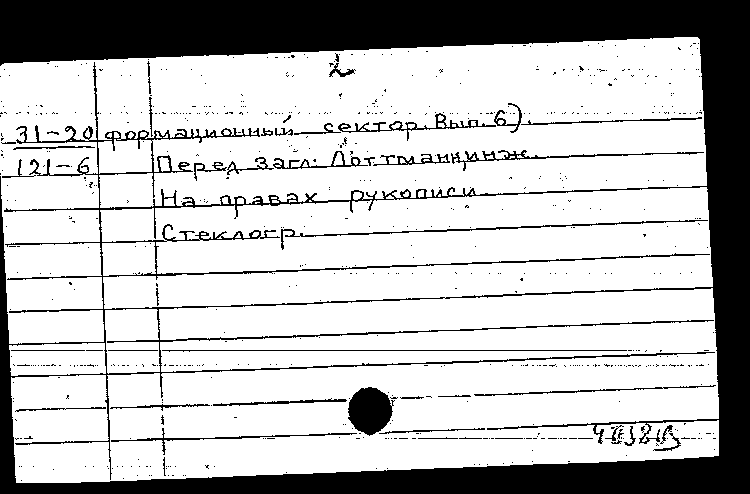 2
31-20 формационный сектор. Вып. 6).
121-6 Перед загл: Лоттманн, инж.
На правах рукописи
Стеклогр.